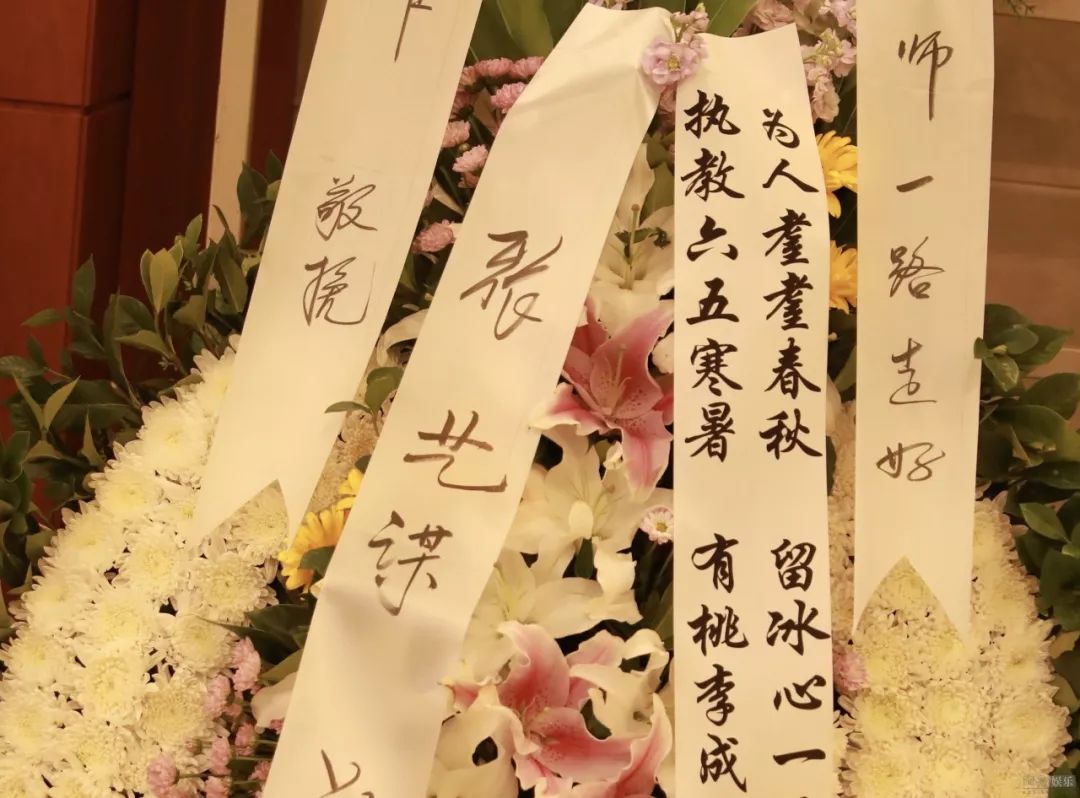 师一路走好
为人耋耋春秋 留冰心一
执教六五寒暑 有桃李成
张艺谋
敬挽
娱乐